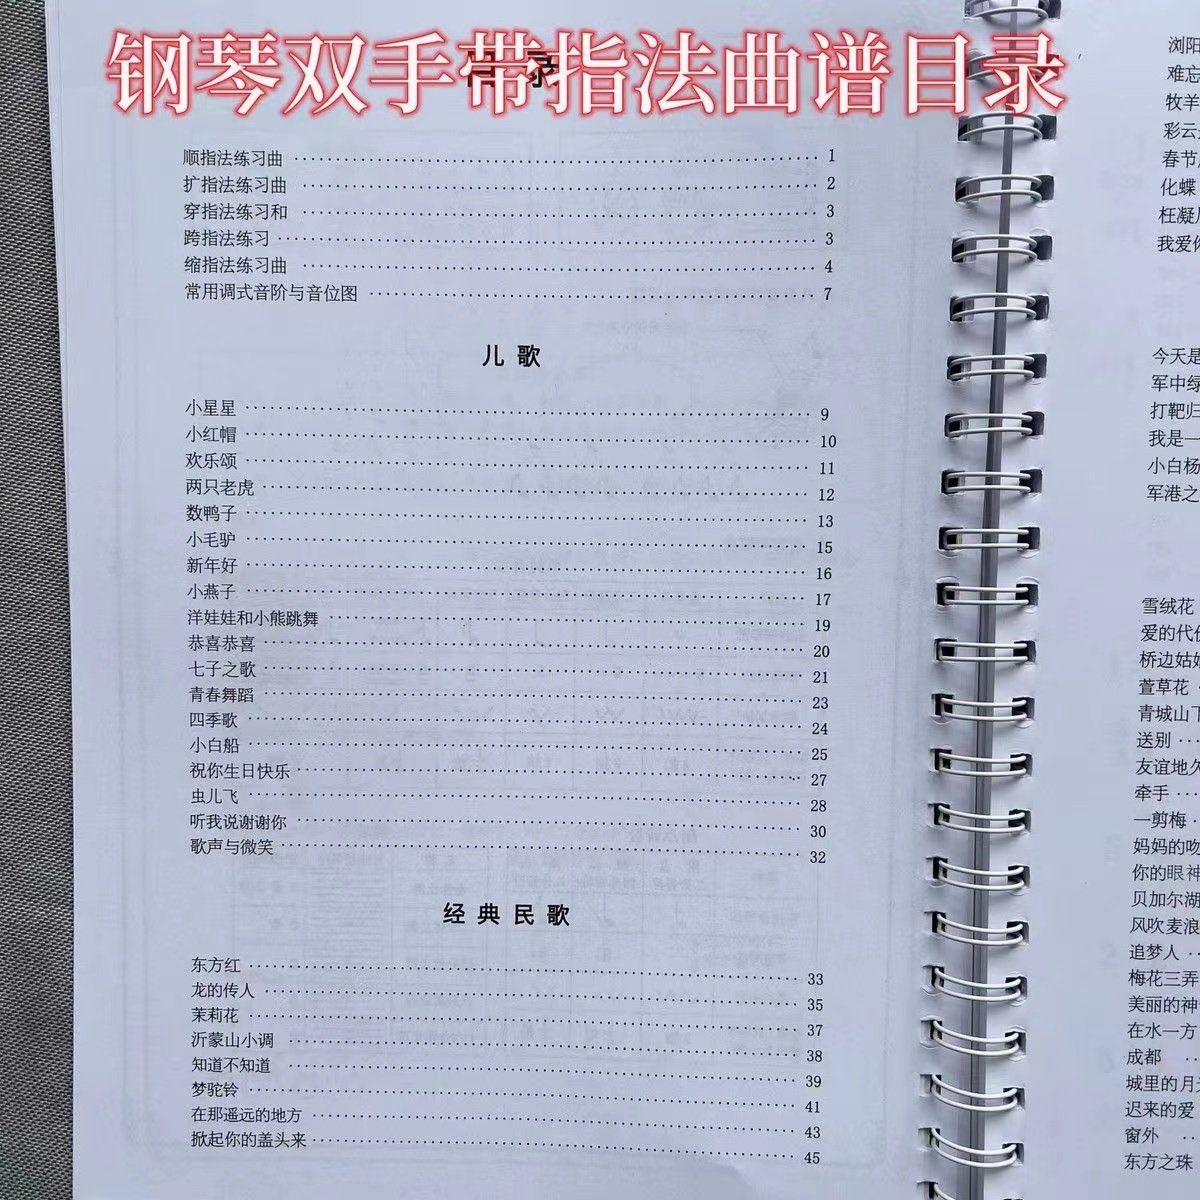 钢琴双手带指法曲谱目录
目录
顺指法练习曲 1
扩指法练习曲 2
穿指法练习和 3
跨指法练习 3
缩指法练习曲 4
常用调式音阶与音位图 7
儿歌
小星星 9
小红帽 10
欢乐颂 11
两只老虎 12
数鸭子 13
小毛驴 15
新年好 16
小燕子 17
洋娃娃和小熊跳舞 19
恭喜恭喜 20
七子之歌 21
青春舞蹈 23
四季歌 24
小白船 25
祝你生日快乐 27
虫儿飞 28
听我说谢谢你 30
歌声与微笑 32
经典民歌
东方红 33
龙的传人 35
茉莉花 37
沂蒙山小调 38
知道不知道 39
梦驼铃 41
在那遥远的地方 43
掀起你的盖头来 45
浏阳
难忘
牧羊
彩云
春节
化蝶
枉凝
我爱你
今天是
军中绿
打靶归
我是一
小白杨
军港之
雪绒花
爱的代价
桥边姑娘
萱草花
青城山下
送别
友谊地久
牵手
一剪梅
妈妈的吻
你的眼神
贝加尔湖
风吹麦浪
追梦人
梅花三弄
美丽的神
在水一方
成都
城里的月
迟来的爱
窗外
东方之珠